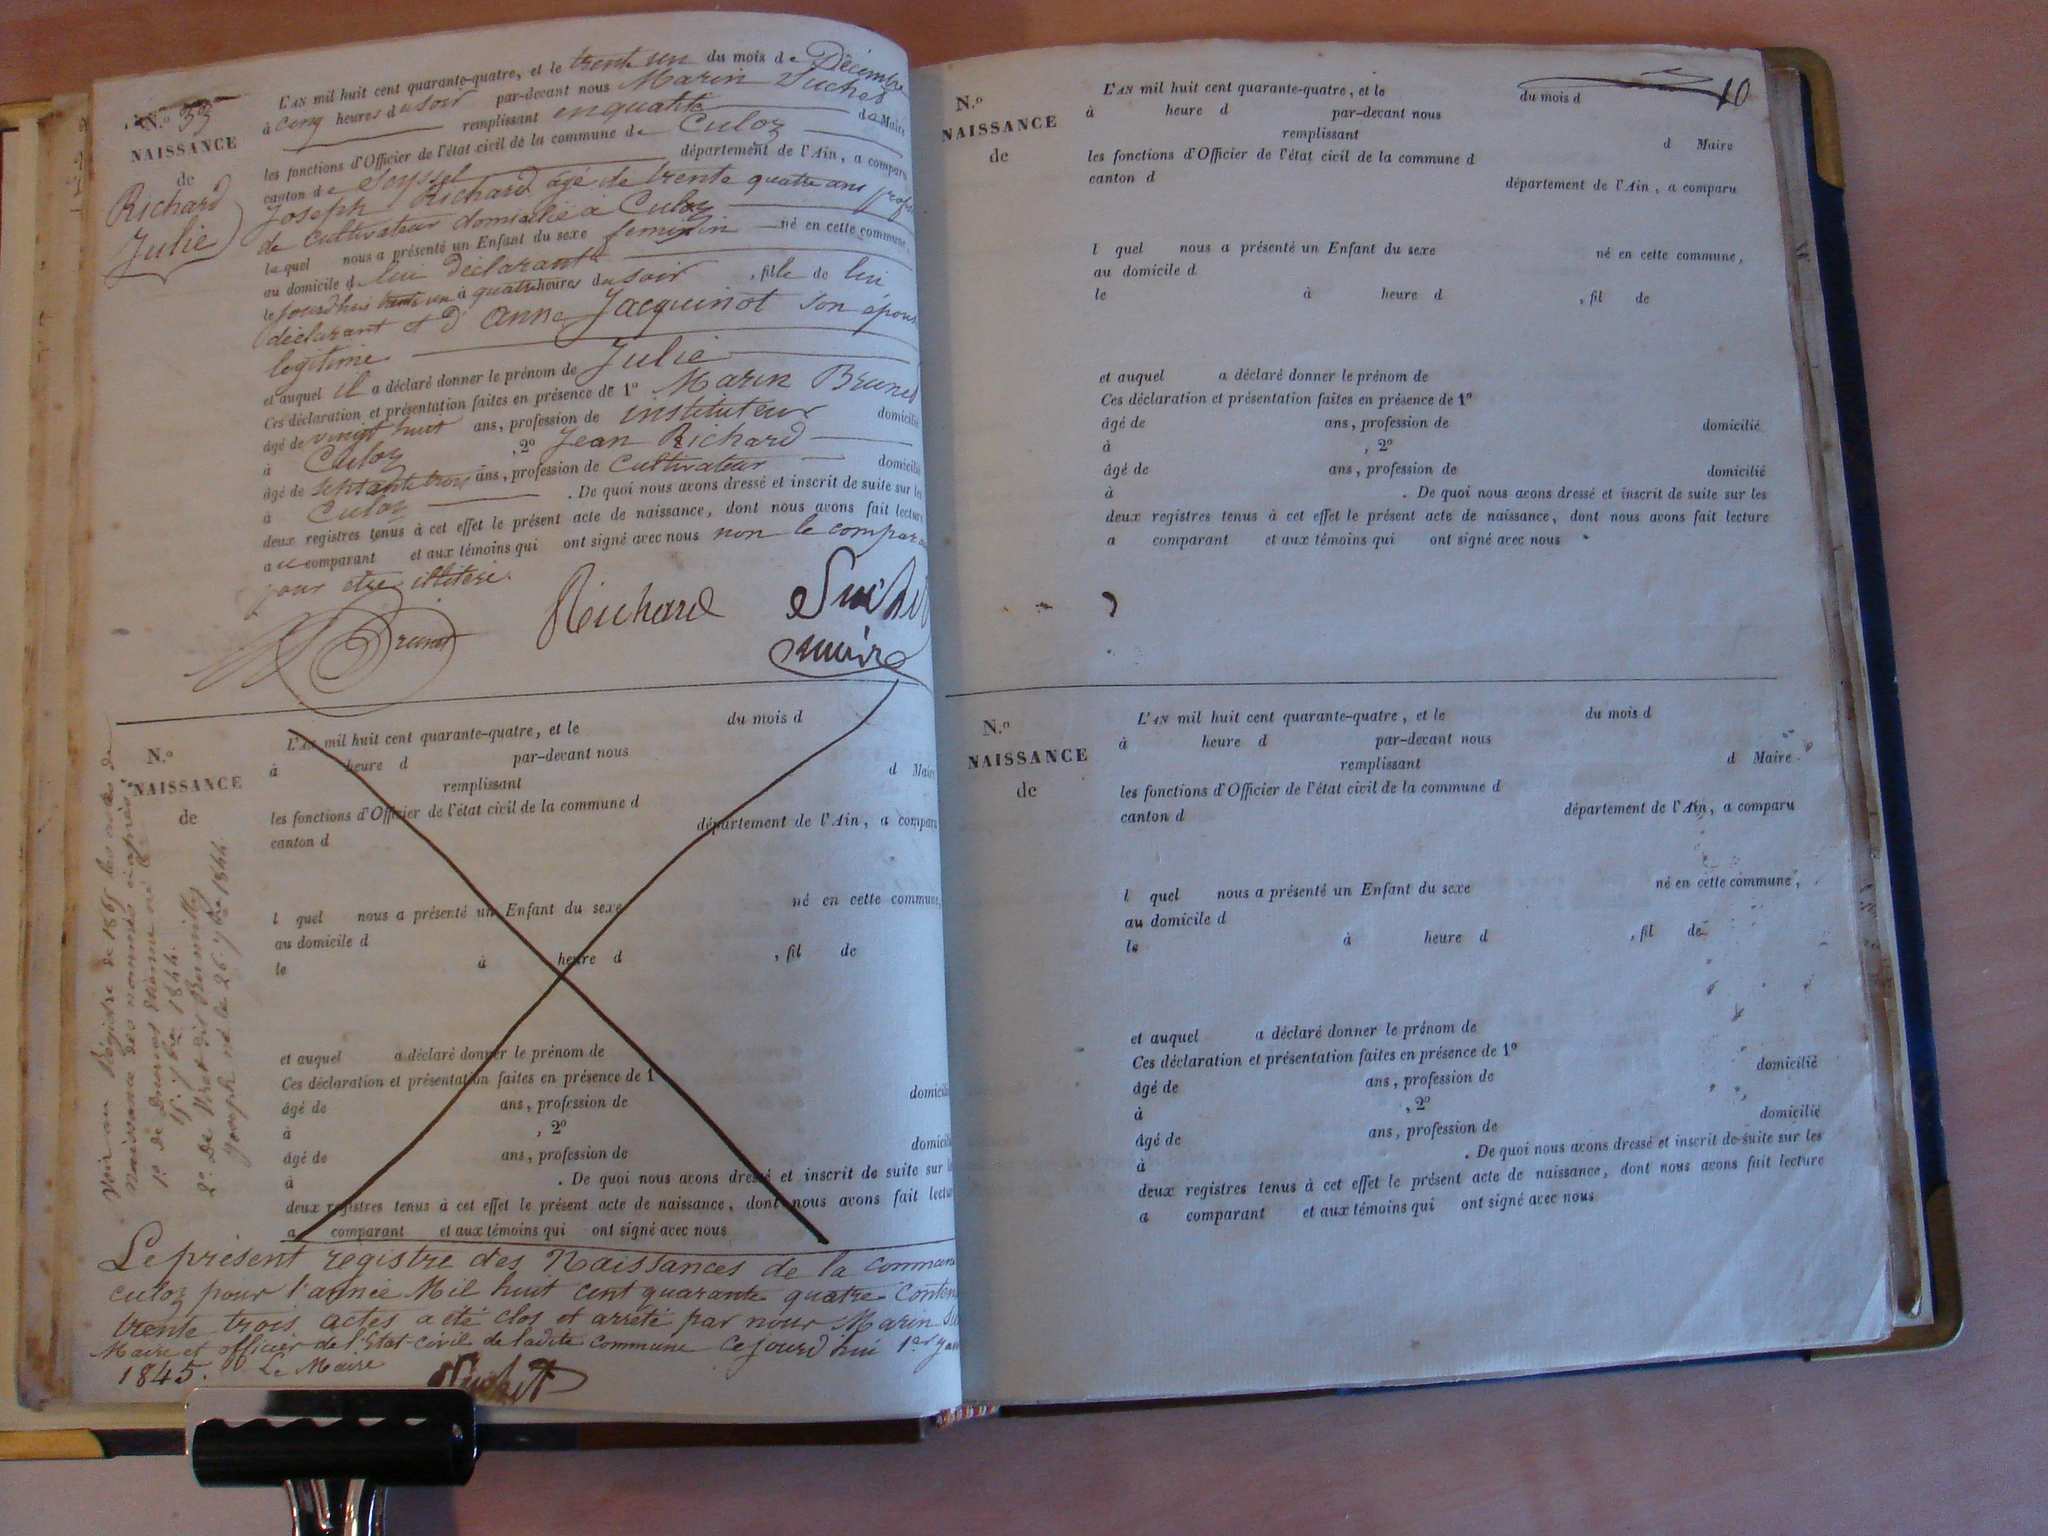 N.º 33
NAISSANCE
de
Richard
Julie
L'AN mil huit cent quarante-quatre, et le trente un du mois de Décembre
à cinq heures du soir par-devant nous Marin Suchet
remplissant en qualité de Maire
les fonctions d'Officier de l'état civil de la commune de Culoz
canton de Seyssel département de l'Ain, a comparu
Joseph Richard âgé de trente quatre ans
de cultivateur domicilié à Culoz
lequel nous a présenté un Enfant du sexe feminin né en cette commune,
au domicile d lui déclarant
le jourdhui trente un à quatre heures du soir, fille de lui
déclarant et d' anne Jacquinot son épouse
legitime
et auquel il a déclaré donner le prénom de Julie
Ces déclaration et présentation faites en présence de 1º Marin Brunet
âgé de vingt huit ans, profession de instituteur domicilié
à Culoz, 2º Jean Richard
âgé de septante trois ans, profession de cultivateur domicilié
à Culoz. De quoi nous avons dressé et inscrit de suite sur les
deux registres tenus à cet effet le présent acte de naissance, dont nous avons fait lecture
au comparant et aux témoins qui ont signé avec nous non le compar
pour etre illiteré.
Brunet Richard Suchet
maire
N.º
NAISSANCE
de
L'AN mil huit cent quarante-quatre, et le du mois d
à heure d par-devant nous
remplissant d Maire
les fonctions d'Officier de l'état civil de la commune d
canton d département de l'Ain, a comparu
l quel nous a présenté un Enfant du sexe né en cette commune,
au domicile d
le à heure d , fil de
et auquel a déclaré donner le prénom de
Ces déclaration et présentation faites en présence de 1
âgé de ans, profession de domicilié
à , 2º
âgé de ans, profession de domicilié
à . De quoi nous avons dressé et inscrit de suite sur les
deux registres tenus à cet effet le présent acte de naissance, dont nous avons fait lecture
a comparant et aux témoins qui ont signé avec nous
Voir au Régistre de 1865 les actes de
Naissance des nommés ci après:
1º de né le
15 7bre 1844.
2º De dit
Joseph né le 26 7bre 1844.
Le présent registre des Naissances de la commune
culoz pour l'année Mil huit cent quarante quatre Conten
trente trois actes a été clos et arrêté par nous Marin Su
Maire et officier de l'Etat-civil de ladite commune Cejourd'hui 1er Jan
1845. Le Maire
Suchet
10
N.º
NAISSANCE
de
L'AN mil huit cent quarante-quatre, et le du mois d
à heure d par-devant nous
remplissant d Maire
les fonctions d'Officier de l'état civil de la commune d
canton d département de l'Ain, a comparu
l quel nous a présenté un Enfant du sexe né en cette commune,
au domicile d
le à heure d , fil de
et auquel a déclaré donner le prénom de
Ces déclaration et présentation faites en présence de 1º
âgé de ans, profession de domicilié
à , 2º
âgé de ans, profession de domicilié
à . De quoi nous avons dressé et inscrit de suite sur les
deux registres tenus à cet effet le présent acte de naissance, dont nous avons fait lecture
a comparant et aux témoins qui ont signé avec nous
N.º
NAISSANCE
de
L'AN mil huit cent quarante-quatre, et le du mois d
à heure d par-devant nous
remplissant d Maire
les fonctions d'Officier de l'état civil de la commune d
canton d département de l'Ain, a comparu
l quel nous a présenté un Enfant du sexe né en cette commune,
au domicile d
le à heure d , fil de
et auquel a déclaré donner le prénom de
Ces déclaration et présentation faites en présence de 1º
âgé de ans, profession de domicilié
à , 2º
âgé de ans, profession de domicilié
à . De quoi nous avons dressé et inscrit de suite sur les
deux registres tenus à cet effet le présent acte de naissance, dont nous avons fait lecture
a comparant et aux témoins qui ont signé avec nous